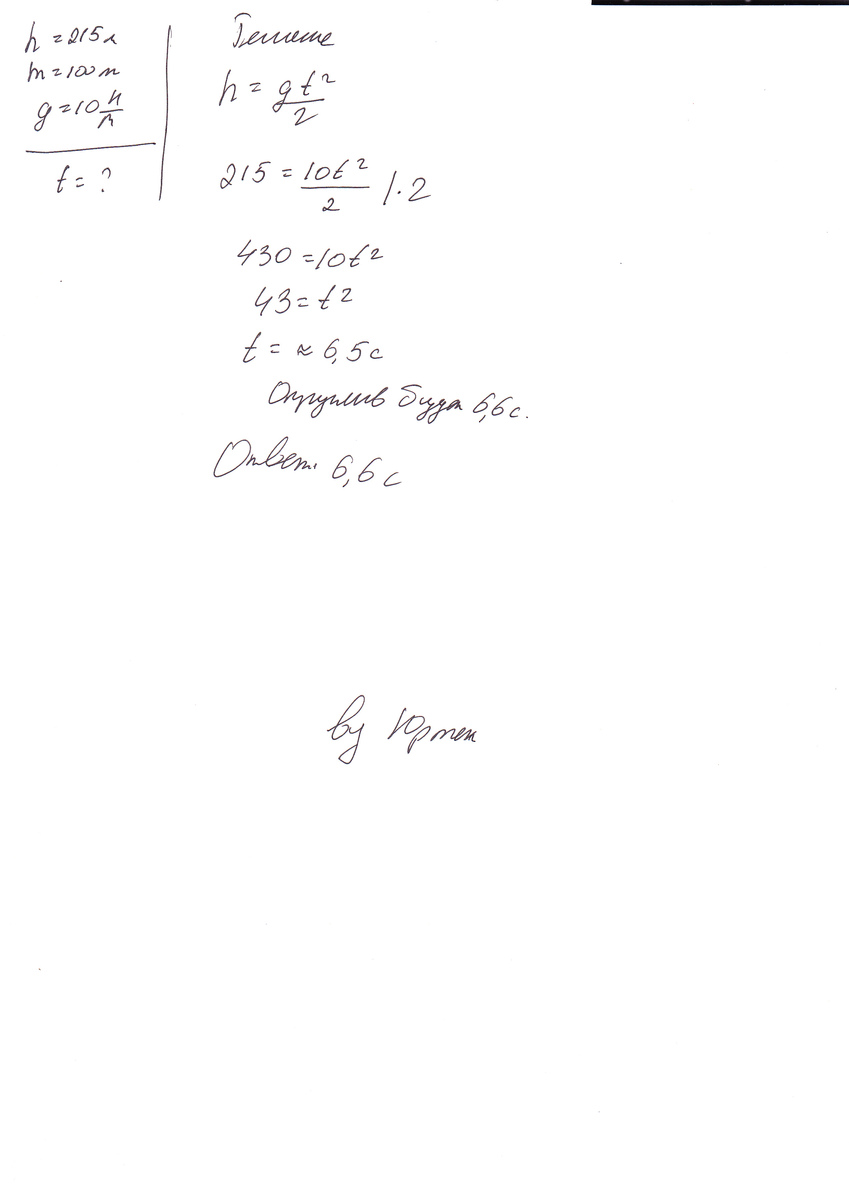 h = 215м
m = 100m
g = 10 Н/м
t = ?
Решение
h = gt²/2
215 = 10t²/2 /·2
430 = 10t²
43 = t²
t = ≈ 6,5 с
Округлив будет 6,6 с.
Ответ: 6,6 с
by Юртек